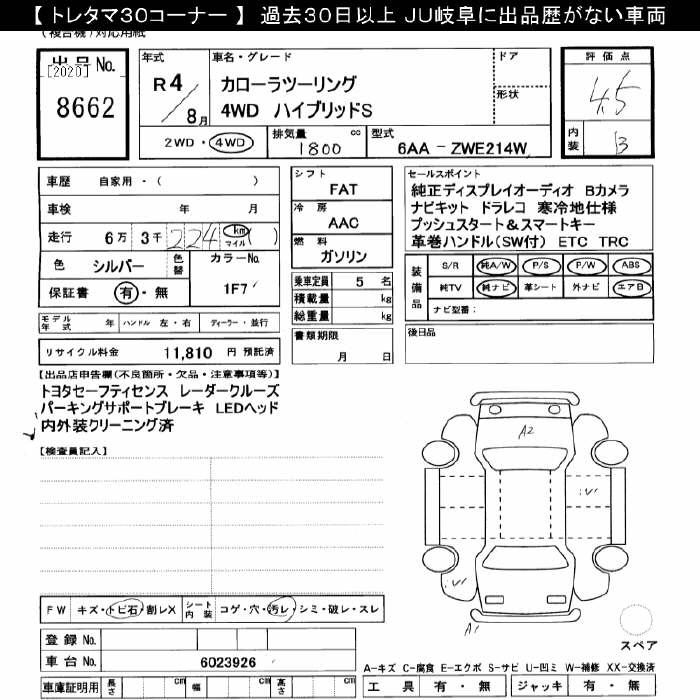 【 トレタマ30コーナー 】 過去30日以上 JU岐阜に出品歴がない車両
(複合機)対応用紙
出品 No.
[2020]
8662
年式
R4
8月
車名・グレード
カローラツーリング
4WD ハイブリッドS
ドア
形状
2WD・4WD
排気量 cc
1800
型式
6AA - ZWE214W
評価点
4.5
内装
B
車歴 自家用・( )
車検 年 月
走行 6万 3千 224 km マイル ( )
色 シルバー
色替
カラーNo.
1F7
保証書 有・無
モデル年式 年 ハンドル 左・右 ディーラー・並行
リサイクル料金 11,810 円 預託済
シフト
FAT
冷房
AAC
燃料
ガソリン
乗車定員 5 名
積載量 kg
総重量 kg
書類期限
月 日
セールスポイント
純正ディスプレイオーディオ Bカメラ
ナビキット ドラレコ 寒冷地仕様
プッシュスタート＆スマートキー
革巻ハンドル(SW付) ETC TRC
装備品
S/R 純A/W P/S P/W ABS
純TV 純ナビ 革シート 外ナビ エアB
ナビ型番:
後日品
【出品店申告欄(不良箇所・欠品・注意事項等)】
トヨタセーフティセンス レーダークルーズ
パーキングサポートブレーキ LEDヘッド
内外装クリーニング済
【検査員記入】
A2
A1
FW キズ・トビ石・割レX
シート内装 コゲ・穴・汚レ・シミ・破レ・スレ
登録 No.
車台 No. 6023926
車庫証明用 長さ cm 幅 cm 高さ cm
スペア
A-キズ C-腐食 E-エクボ S-サビ U-凹ミ W-補修 XX-交換済
工具 有・無 ジャッキ 有・無